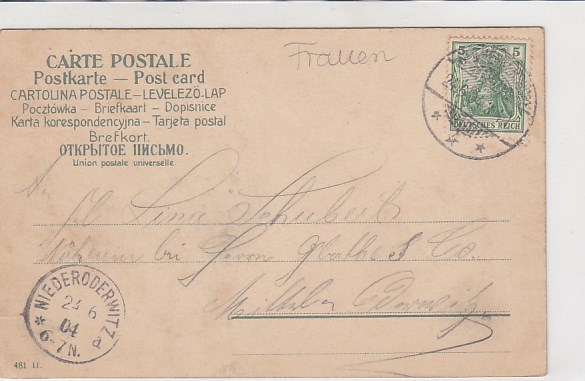 CARTE POSTALE
Postkarte — Post card
CARTOLINA POSTALE — LEVELEZÖ-LAP
Pocztówka — Briefkaart — Dopisnice
Karta korespondencyjna — Tarjeta postal
Brefkort.
ОТКРЫТОЕ ПИСЬМО.
Union postale universelle.
Frauen
5 5
DEUTSCHES REICH
An
Lina Schubert
bei Herrn & Co.
Mittel Oderwitz
NIEDERODERWITZ
23 6
04
6-7N. a
481 11.